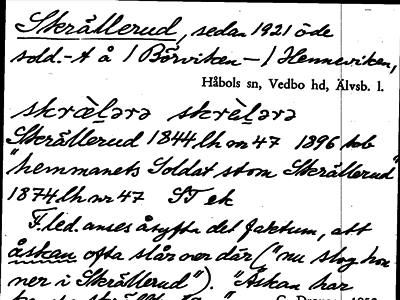 Skrällerud, sedan 1921 öde
sold.-t å 1 Börviken – 1 Henneviken,
Håbols sn, Vedbo hd, Älvsb. l.
skræ̀ḷərə skrèḷərə
Skrällerud 1844 lh nr 47 1896 kob
"hemmanets Soldat st om Skrällerud"
1874 lh nr 47 ST ek
F.led. anses åsyfta det faktum, att
åskan ofta slår ner där ("nu slog hon
ner i Skrällerud"). "Åskan har